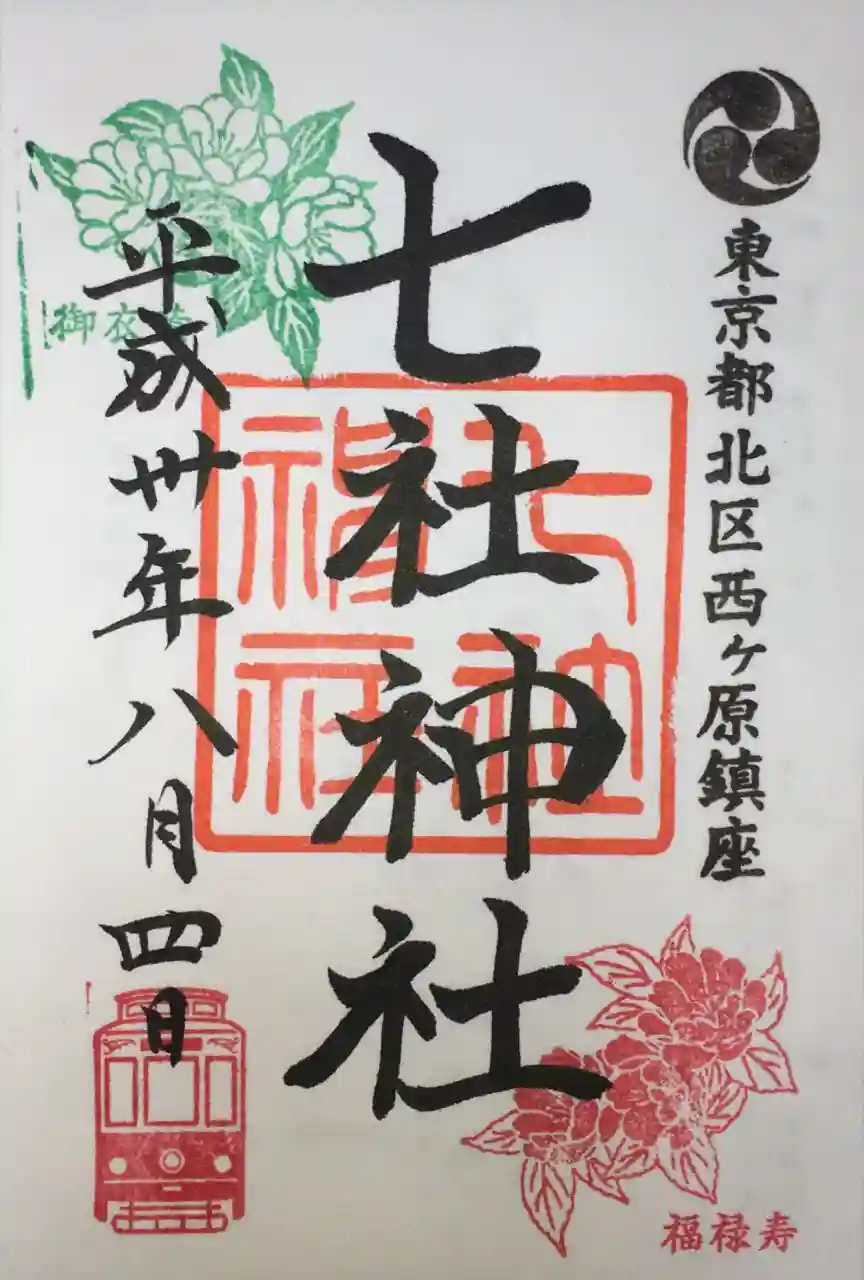 東京都北区西ヶ原鎮座
七社神社
平成卅年八月四日
七社
神社
御衣
福禄寿